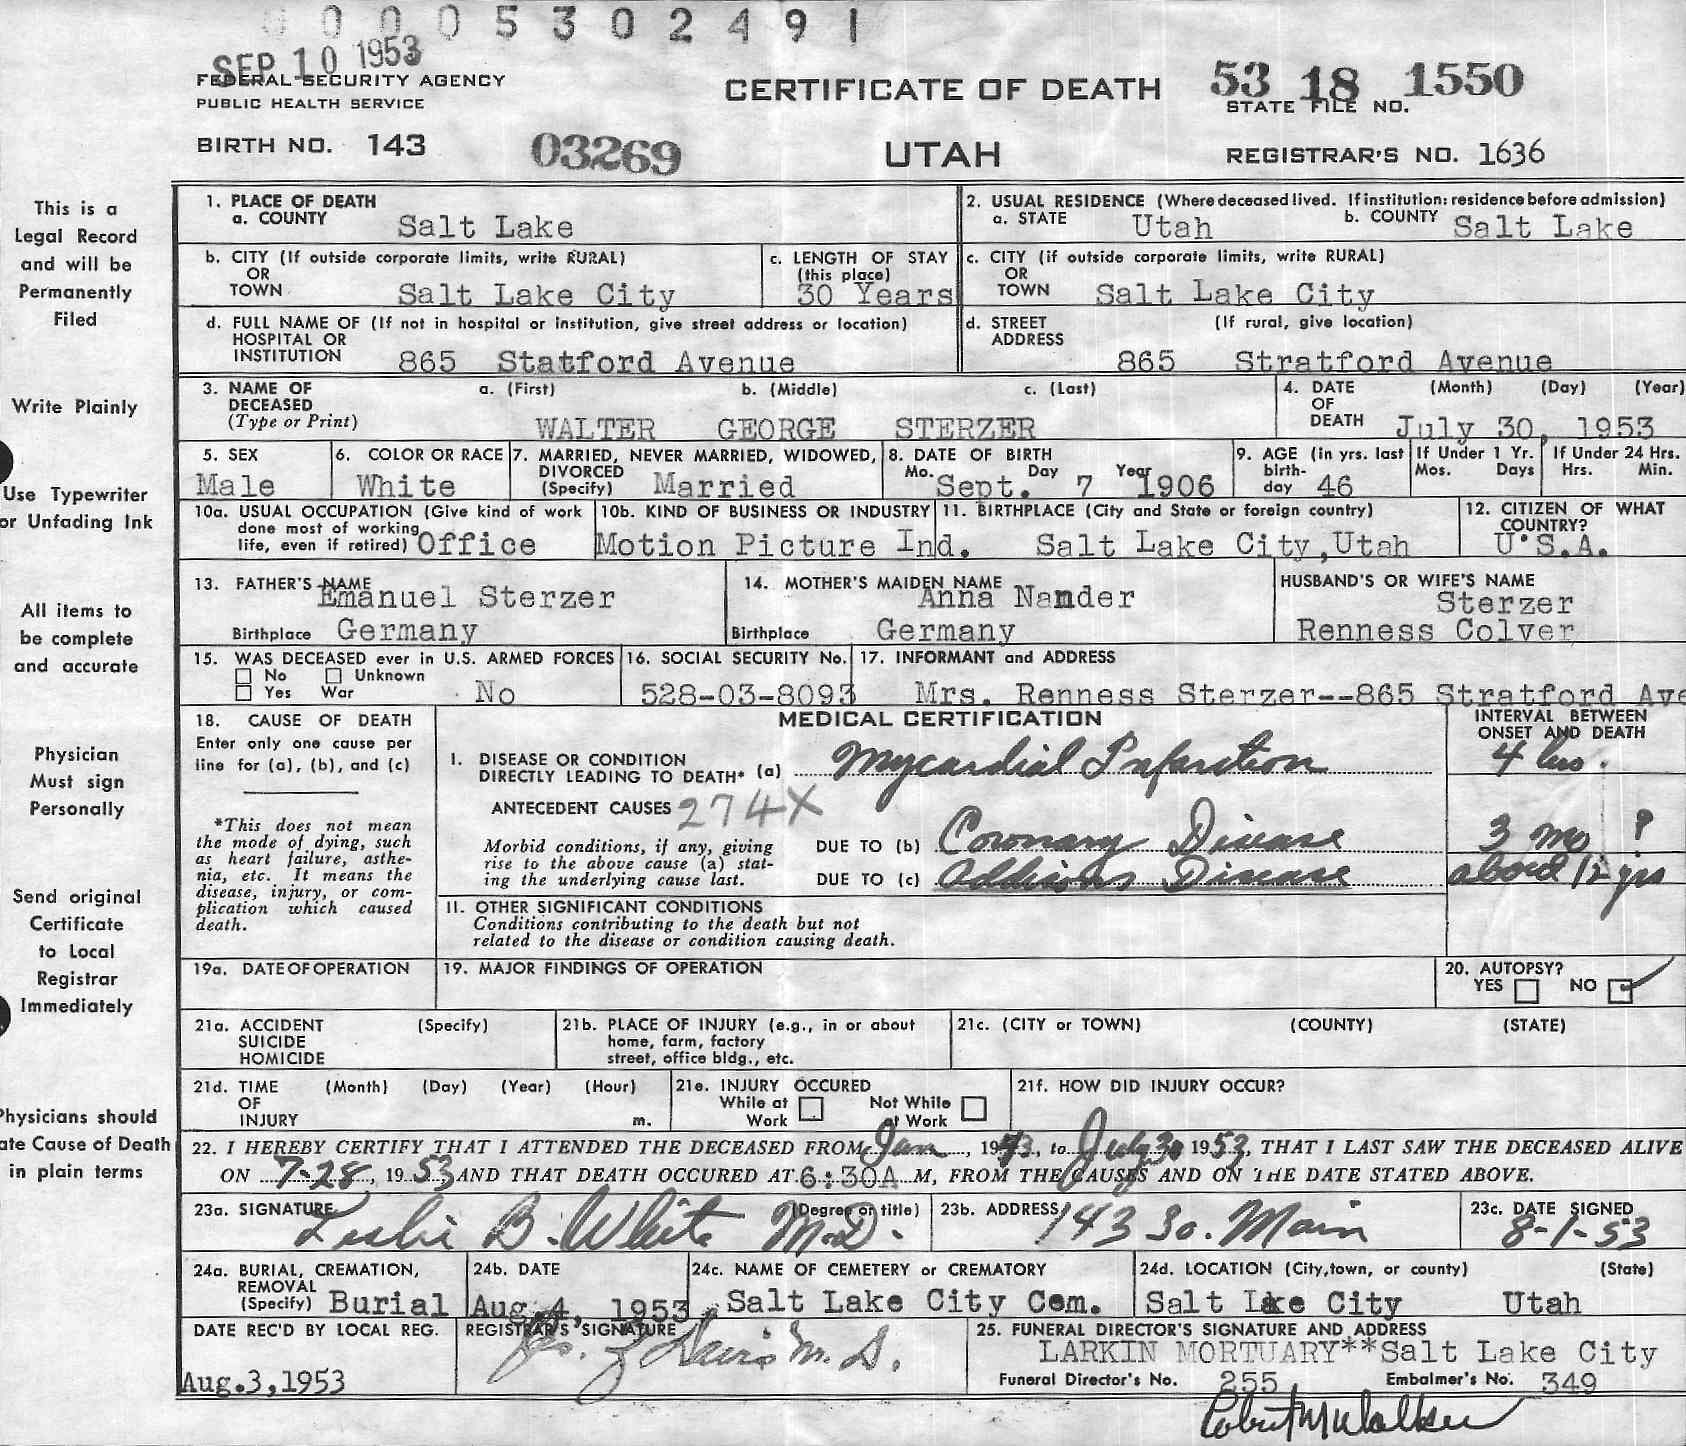 0 0 0 0 5 3 0 2 4 9 1
SEP 10 1953
FEDERAL SECURITY AGENCY
PUBLIC HEALTH SERVICE
CERTIFICATE OF DEATH
53 18 1550
STATE FILE NO.
BIRTH NO. 143
03269
UTAH
REGISTRAR'S NO. 1636
This is a
Legal Record
and will be
Permanently
Filed
Write Plainly
Use Typewriter
or Unfading Ink
All items to
be complete
and accurate
Physician
Must sign
Personally
Send original
Certificate
to Local
Registrar
Immediately
Physicians should
ate Cause of Death
in plain terms
1. PLACE OF DEATH
a. COUNTY Salt Lake
2. USUAL RESIDENCE (Where deceased lived. If institution: residence before admission)
a. STATE Utah b. COUNTY Salt Lake
b. CITY (If outside corporate limits, write RURAL)
OR
TOWN Salt Lake City
c. LENGTH OF STAY
(this place)
30 Years
c. CITY (if outside corporate limits, write RURAL)
OR
TOWN Salt Lake City
d. FULL NAME OF (If not in hospital or institution, give street address or location)
HOSPITAL OR
INSTITUTION 865 Statford Avenue
d. STREET (If rural, give location)
ADDRESS
865 Stratford Avenue
3. NAME OF a. (First) b. (Middle) c. (Last)
DECEASED
(Type or Print) WALTER GEORGE STERZER
4. DATE (Month) (Day) (Year)
OF
DEATH July 30, 1953
5. SEX
Male
6. COLOR OR RACE
White
7. MARRIED, NEVER MARRIED, WIDOWED,
DIVORCED
(Specify) Married
8. DATE OF BIRTH
Mo. Day Year
Sept. 7 1906
9. AGE (in yrs. last
birth-
day 46
If Under 1 Yr.
Mos. Days
If Under 24 Hrs.
Hrs. Min.
10a. USUAL OCCUPATION (Give kind of work
done most of working
life, even if retired) Office
10b. KIND OF BUSINESS OR INDUSTRY
Motion Picture Ind.
11. BIRTHPLACE (City and State or foreign country)
Salt Lake City, Utah
12. CITIZEN OF WHAT
COUNTRY?
U.S.A.
13. FATHER'S NAME
Emanuel Sterzer
Birthplace Germany
14. MOTHER'S MAIDEN NAME
Anna Nander
Birthplace Germany
HUSBAND'S OR WIFE'S NAME
Sterzer
Renness Colver
15. WAS DECEASED ever in U.S. ARMED FORCES
No Unknown
Yes War No
16. SOCIAL SECURITY No.
528-03-8093
17. INFORMANT and ADDRESS
Mrs. Renness Sterzer--865 Stratford Ave
18. CAUSE OF DEATH
Enter only one cause per
line for (a), (b), and (c)
*This does not mean
the mode of dying, such
as heart failure, asthe-
nia, etc. It means the
disease, injury, or com-
plication which caused
death.
MEDICAL CERTIFICATION
INTERVAL BETWEEN
ONSET AND DEATH
I. DISEASE OR CONDITION
DIRECTLY LEADING TO DEATH* (a) Mycardial Infarction 4 hrs.
ANTECEDENT CAUSES 274X
Morbid conditions, if any, giving
rise to the above cause (a) stat-
ing the underlying cause last.
DUE TO (b) Coronary Disease 3 mo ?
DUE TO (c) Addisons Disease about 12 yrs
II. OTHER SIGNIFICANT CONDITIONS
Conditions contributing to the death but not
related to the disease or condition causing death.
19a. DATE OF OPERATION
19. MAJOR FINDINGS OF OPERATION
20. AUTOPSY?
YES NO
21a. ACCIDENT (Specify)
SUICIDE
HOMICIDE
21b. PLACE OF INJURY (e.g., in or about
home, farm, factory
street, office bldg., etc.
21c. (CITY or TOWN) (COUNTY) (STATE)
21d. TIME (Month) (Day) (Year) (Hour)
OF
INJURY m.
21e. INJURY OCCURED
While at Not While
Work at Work
21f. HOW DID INJURY OCCUR?
22. I HEREBY CERTIFY THAT I ATTENDED THE DECEASED FROM Jan, 1943, to July 30 1953, THAT I LAST SAW THE DECEASED ALIVE
ON 7-28, 1953 AND THAT DEATH OCCURED AT 6:30A M, FROM THE CAUSES AND ON THE DATE STATED ABOVE.
23a. SIGNATURE (Degree or title)
Leslie B. White M.D.
23b. ADDRESS
143 So. Main
23c. DATE SIGNED
8-1-53
24a. BURIAL, CREMATION,
REMOVAL
(Specify) Burial
24b. DATE
Aug. 4, 1953
24c. NAME OF CEMETERY or CREMATORY
Salt Lake City Cem.
24d. LOCATION (City, town, or county) (State)
Salt Lake City Utah
DATE REC'D BY LOCAL REG.
Aug.3,1953
REGISTRAR'S SIGNATURE
Davis M. D.
25. FUNERAL DIRECTOR'S SIGNATURE AND ADDRESS
LARKIN MORTUARY**Salt Lake City
Funeral Director's No. 255 Embalmer's No. 349
Robert